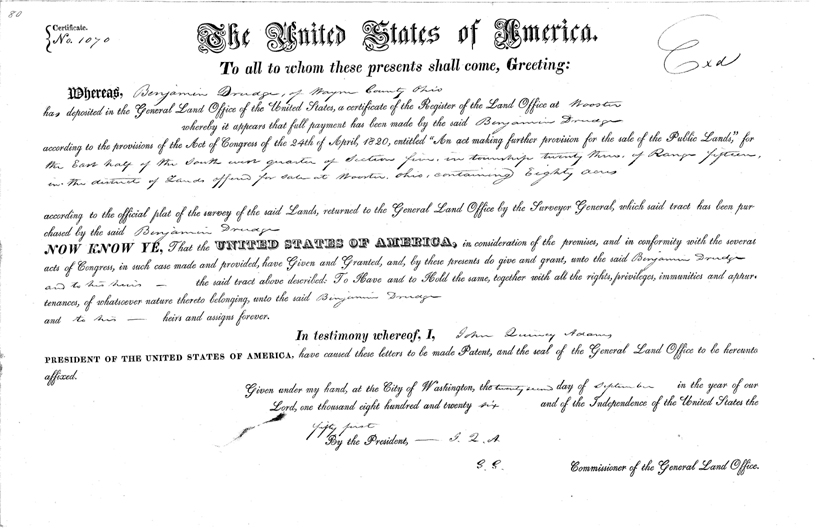 80
Certificate.
No. 1070
The United States of America.
Cxd
To all to whom these presents shall come, Greeting:
Whereas, Benjamin Drudge, of Wayne County Ohio
has deposited in the General Land Office of the United States, a certificate of the Register of the Land Office at Wooster
whereby it appears that full payment has been made by the said Benjamin Drudge
according to the provisions of the Act of Congress of the 24th of April, 1820, entitled "An act making further provision for the sale of the Public Lands," for
the East half of the South west quarter of Section five, in township twenty three, of Range fifteen,
in the district of Lands offered for sale at Wooster, Ohio, containing Eighty acres
according to the official plat of the survey of the said Lands, returned to the General Land Office by the Surveyor General, which said tract has been pur
chased by the said Benjamin Drudge
NOW KNOW YE, That the UNITED STATES OF AMERICA, in consideration of the premises, and in conformity with the several
acts of Congress, in such case made and provided, have Given and Granted, and, by these presents do give and grant, unto the said Benjamin Drudge
and to his heirs — the said tract above described: To Have and to Hold the same, together with all the rights, privileges, immunities and appur-
tenances, of whatsoever nature thereto belonging, unto the said Benjamin Drudge
and to his — heirs and assigns forever.
In testimony whereof, I, John Quincy Adams
PRESIDENT OF THE UNITED STATES OF AMERICA, have caused these letters to be made Patent, and the seal of the General Land Office to be hereunto
affixed.
Given under my hand, at the City of Washington, the day of September in the year of our
Lord, one thousand eight hundred and twenty six and of the Independence of the United States the
fifty first
By the President, — J. Q. A.
G. G. Commissioner of the General Land Office.